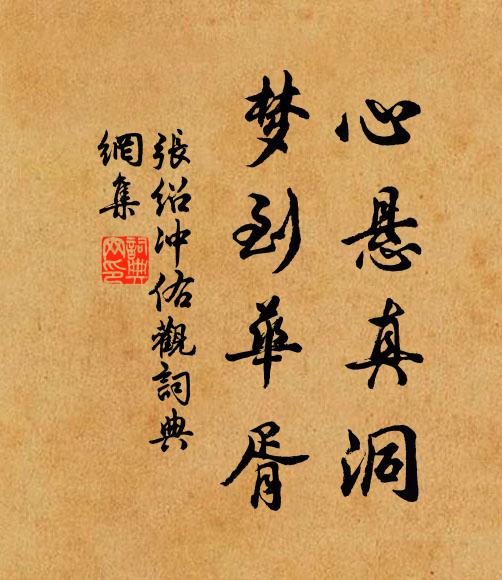 心悬真洞
梦到华胥
張绍冲佑觀詞典
網集
詞典
网印